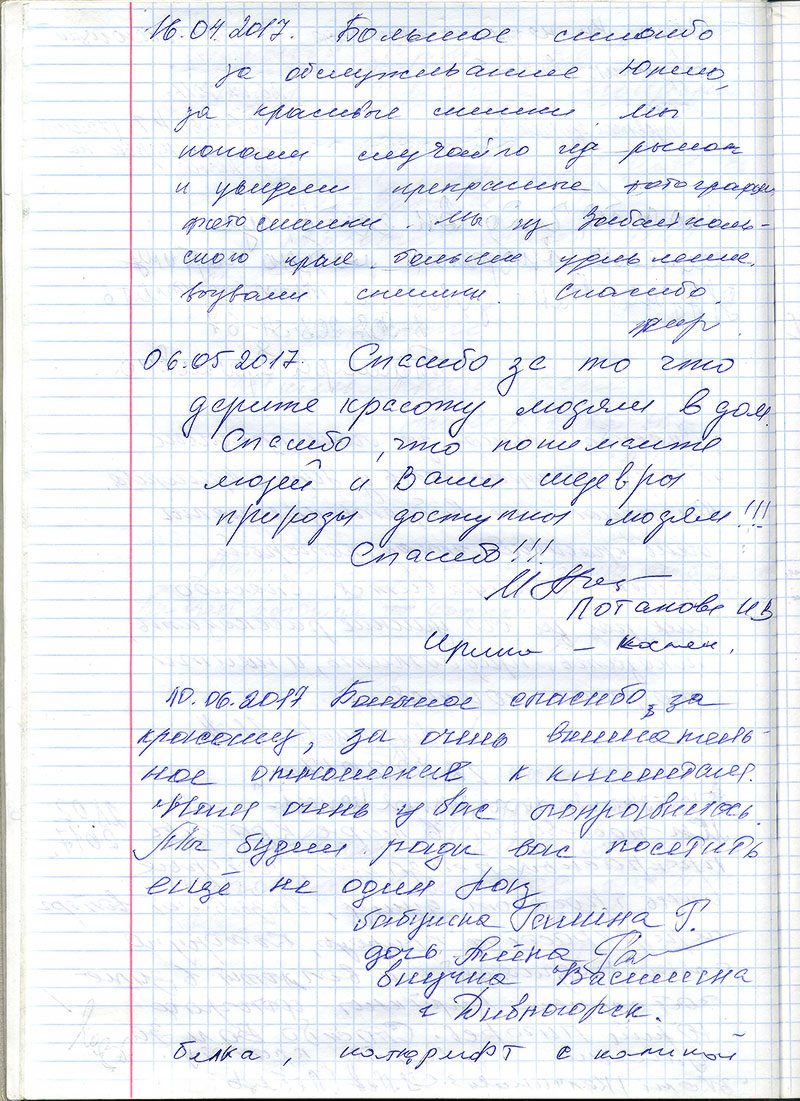 16.04.2017. Большое спасибо
за обслуживание Юрию,
за красивые снимки. Мы
попали случайно на рынок
и увидели прекрасные фотографии
фотоснимки. Мы из Забайкаль-
ского края. Большое удивление
вызвали снимки. Спасибо.
06.05.2017. Спасибо за то что
дарите красоту людям в дом.
Спасибо, что понимаите
людей и Ваши шедевры
природы доступны людям!!!
Спасибо!!!
Потапова ИВ
Ирина –
10.06.2017 Большое спасибо, за
красоту, за очень вниматель-
ное отношение к клиентам.
Нам очень у вас понравилось.
Мы будем рады вас посетить
ещё не один раз
бабушка Галина Г.
дочь Алёна
внучка Василина
г Дивногорск.
белка, натюрморт с калиной